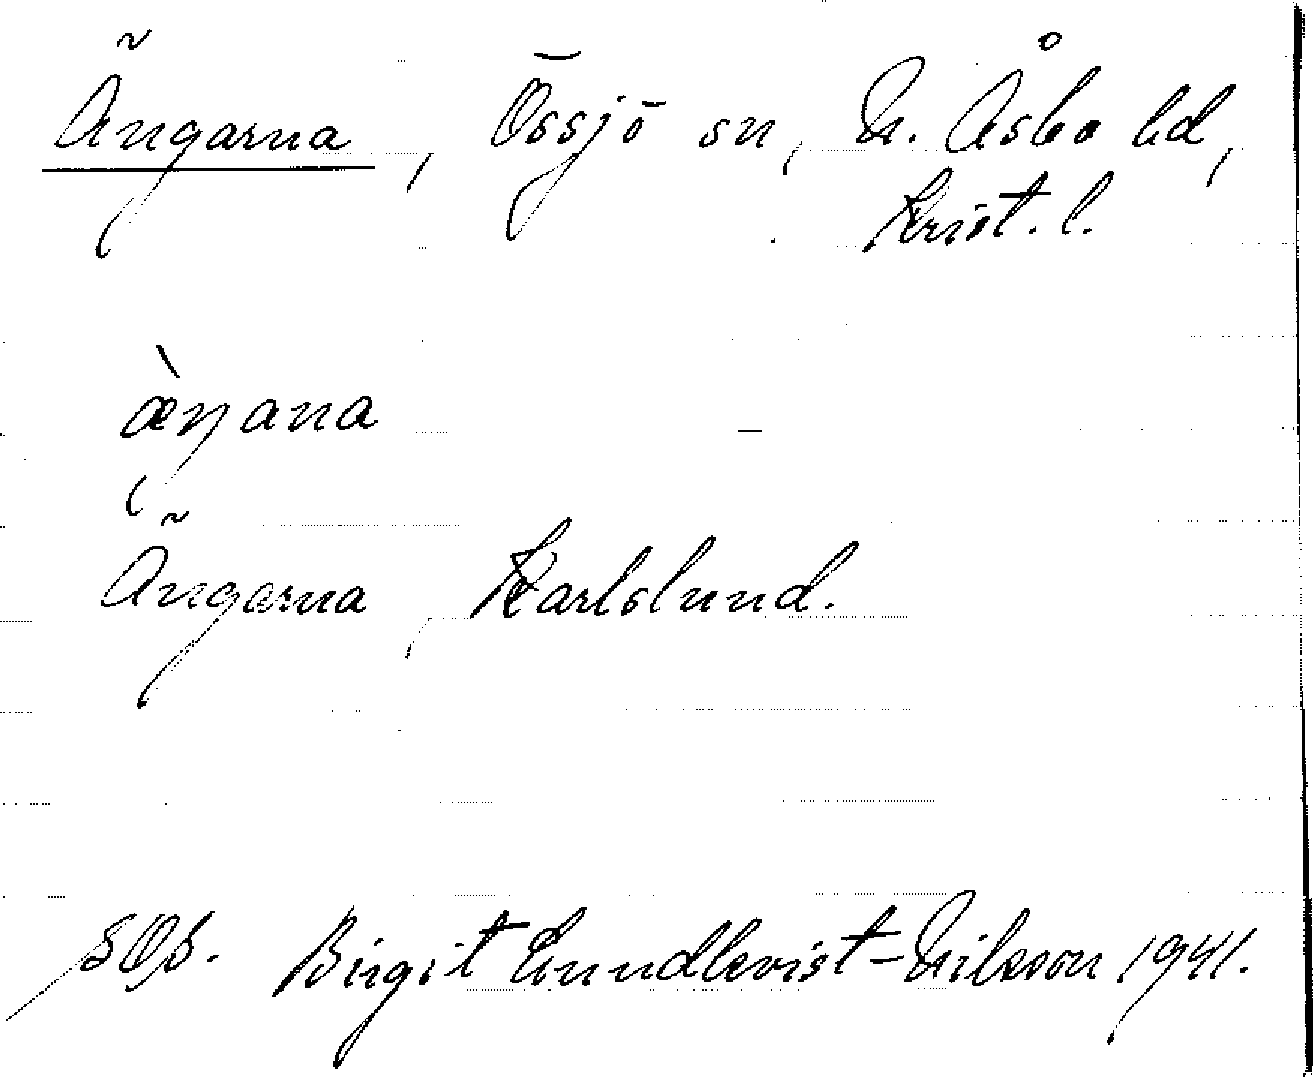 Ängarna, Össjö sn, N. Åsbo hd,
Krist. l.
æ̀ŋana
Ängarna, Karlslund.
Birgit Lundkvist-Nilsson 1941.